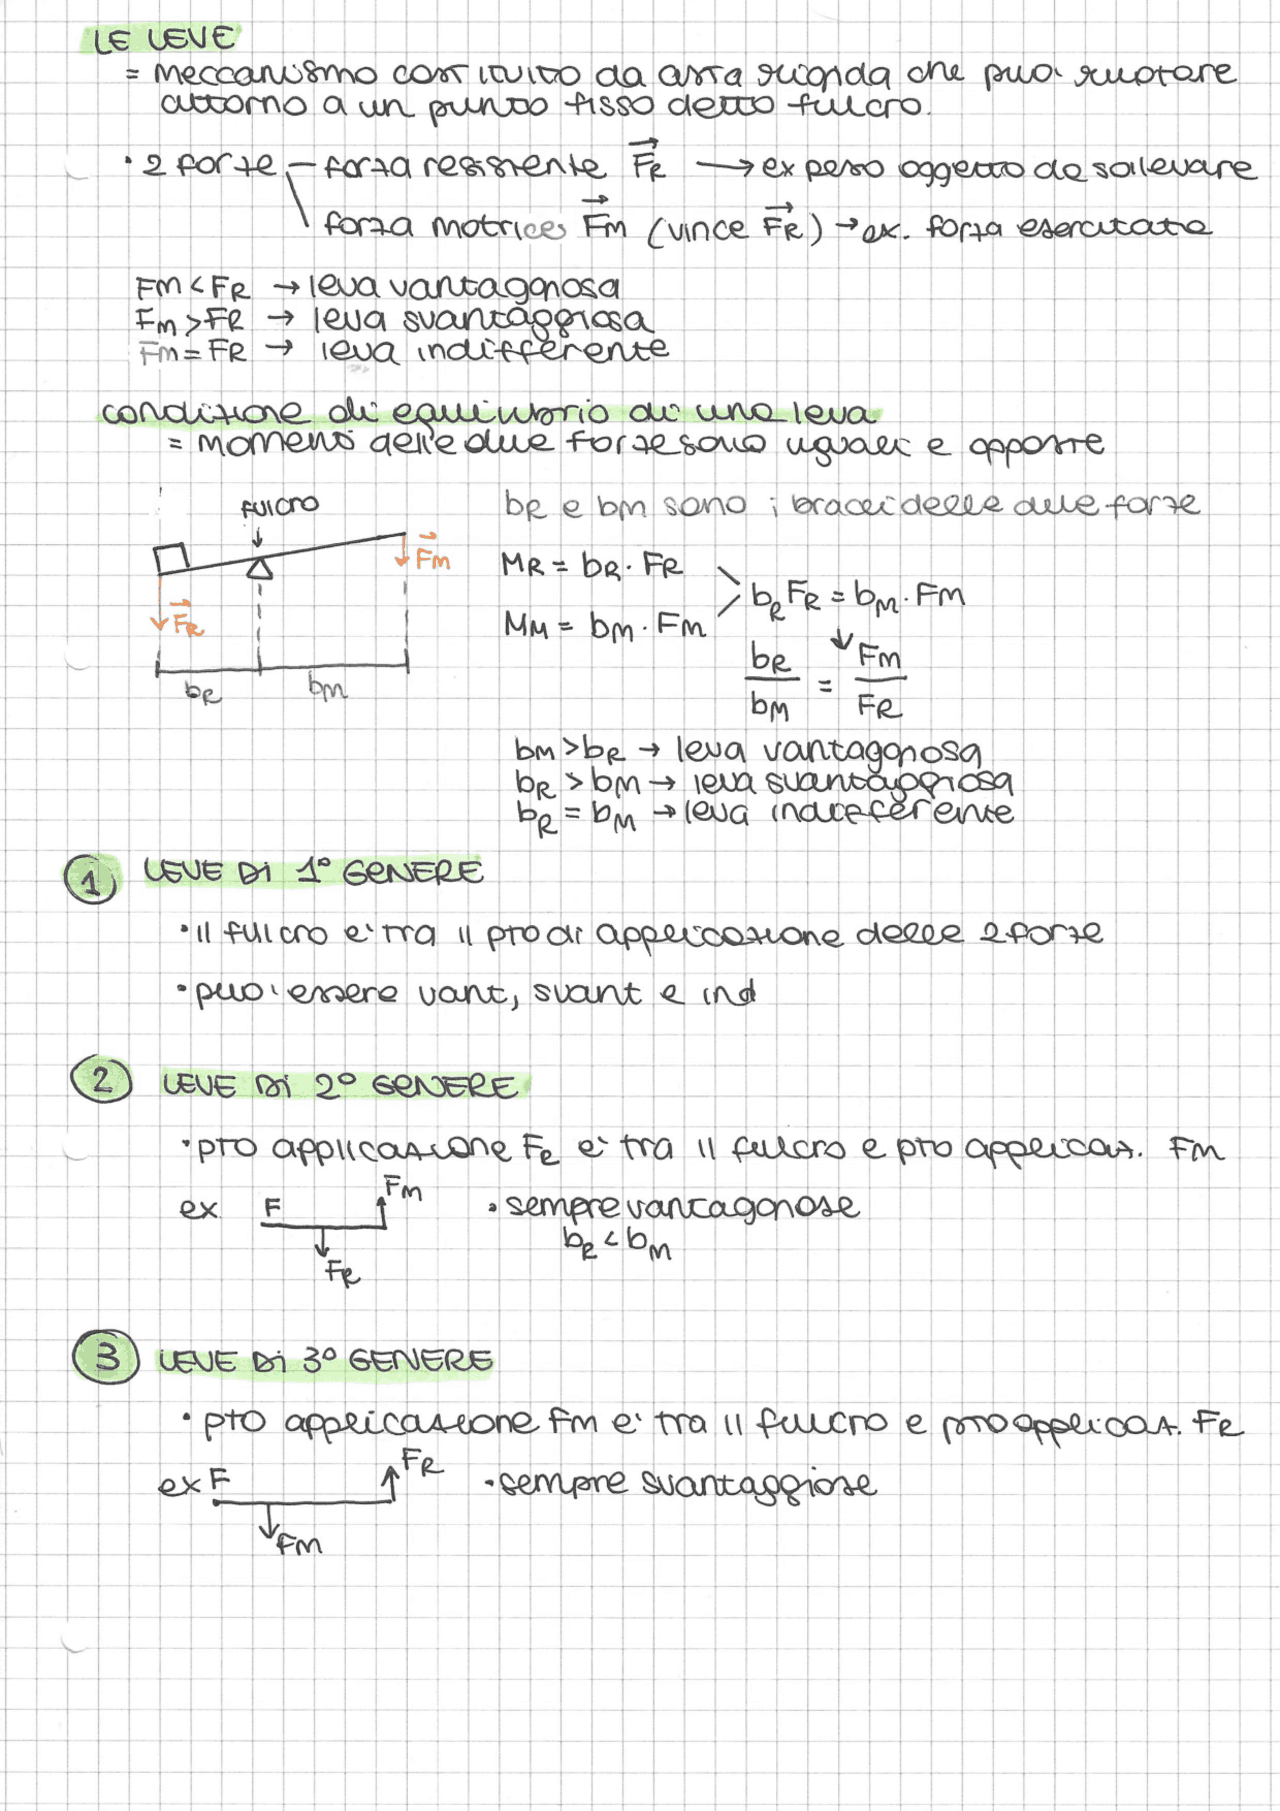 LE LEVE
= meccanismo costituito da asta rigida che puo' ruotare
attorno a un punto fisso detto fulcro.
• 2 forze – forza resistente F⃗R → ex peso oggetto da sollevare
forza motrice F⃗m (vince F⃗R) → ex. forza esercitata
Fm < FR → leva vantaggiosa
Fm > FR → leva svantaggiosa
Fm = FR → leva indifferente
condizione di equilibrio di una leva
= momenti delle due forze sono uguali e opposte
fulcro
bR e bm sono i bracci delle due forze
F⃗m
F⃗R
bR
bm
MR = bR · FR
MM = bm · Fm
bR FR = bM · Fm
bR/bM = Fm/FR
bm > bR → leva vantaggiosa
bR > bM → leva svantaggiosa
bR = bM → leva indifferente
1 LEVE Di 1° GENERE
• il fulcro e' tra il pto di applicazione delle 2 forze
• puo' essere vant, svant e ind
2 LEVE Di 2° GENERE
• pto applicazione FR e' tra il fulcro e pto applicaz. Fm
ex F Fm
FR
• sempre vantaggiose
bR < bM
3 LEVE Di 3° GENERE
• pto applicazione Fm e' tra il fulcro e pto applicaz. FR
ex F FR
Fm
• sempre svantaggiose